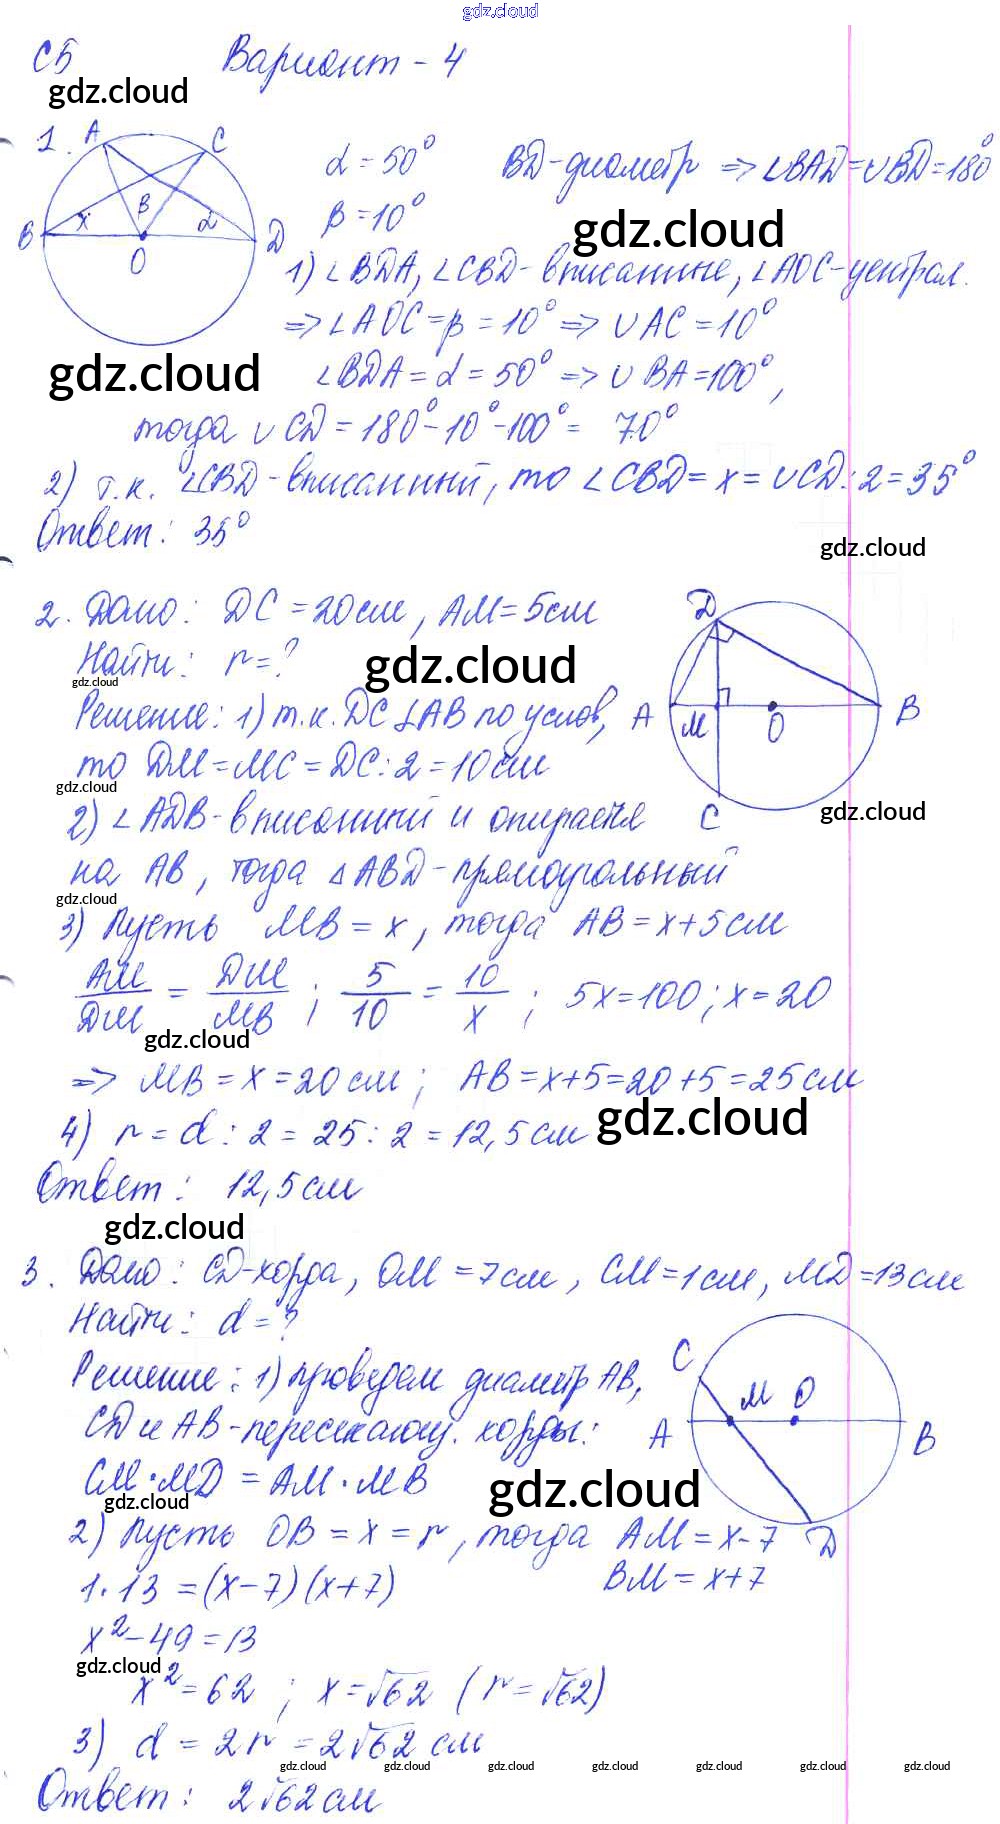 gdz.cloud
С5 Вариант - 4
gdz.cloud
1. A C B D O x β α
α = 50° BD-диаметр => ∠BAD = ∪BD = 180°
β = 10° gdz.cloud
1) ∠BDA, ∠CBD - вписанные, ∠AOC - централ.
=> ∠AOC = β = 10° => ∪AC = 10°
gdz.cloud ∠BDA = α = 50° => ∪BA = 100°,
тогда ∪CD = 180° - 10° - 100° = 70°
2) т.к. ∠CBD - вписанный, то ∠CBD = x = ∪CD : 2 = 35°
Ответ: 35°
gdz.cloud
2. Дано: DC = 20 см, AM = 5 см
Найти: r = ? gdz.cloud
gdz.cloud
Решение: 1) т.к. DC ⊥ AB по услов,
то DM = MC = DC : 2 = 10 см
gdz.cloud
D A M O B C
gdz.cloud
2) ∠ADB - вписанный и опирается
на AB, тогда △ABD - прямоугольный
gdz.cloud
3) Пусть MB = x, тогда AB = x + 5 см
AM/DM = DM/MB ; 5/10 = 10/x ; 5x = 100 ; x = 20
gdz.cloud
=> MB = x = 20 см ; AB = x + 5 = 20 + 5 = 25 см
4) r = d : 2 = 25 : 2 = 12,5 см gdz.cloud
Ответ: 12,5 см
gdz.cloud
3. Дано: CD - хорда, OM = 7 см, CM = 1 см, MD = 13 см
Найти: d = ?
Решение: 1) проведем диаметр AB,
CD и AB - пересекающ. хорды:
CM · MD = AM · MB
C M O A B D
gdz.cloud gdz.cloud
2) Пусть OB = x = r, тогда AM = x - 7
BM = x + 7
1 · 13 = (x - 7)(x + 7)
x² - 49 = 13
gdz.cloud
x² = 62 ; x = √62 (r = √62)
3) d = 2r = 2√62 см
gdz.cloud gdz.cloud gdz.cloud gdz.cloud gdz.cloud gdz.cloud gdz.cloud
Ответ: 2√62 см